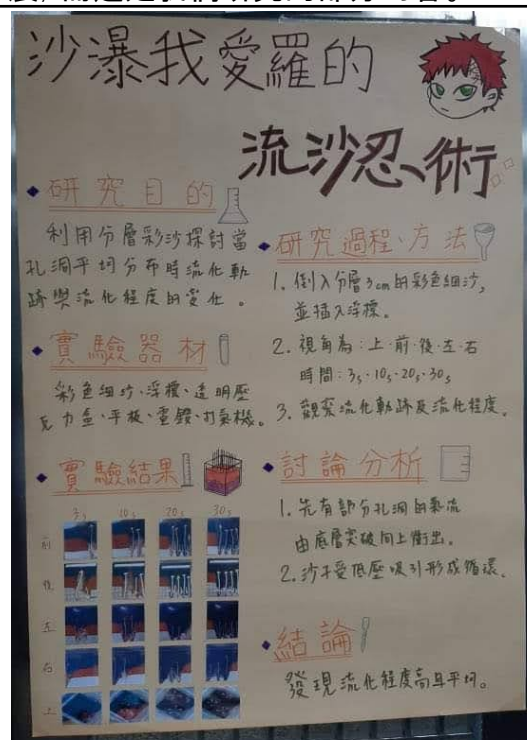 沙瀑我愛羅的
流沙忍術
研究目的
利用分層彩沙探討當
孔洞平均分布時流化軌
跡與流化程度的變化。
實驗器材
彩色細沙、浮標、透明壓
克力盒、平板、電鑽、打氣機。
實驗結果
3s 10s 20s 30s
前
後
左
右
上
研究過程、方法
1. 倒入分層3cm的彩色細沙,
並插入浮標。
2. 視角為:上、前、後、左、右
時間:3s、10s、20s、30s
3. 觀察流化軌跡及流化程度。
討論分析
1. 先有部分孔洞的氣流
由底層突破向上衝出。
2. 沙子受低壓吸引形成循環。
結論
發現流化程度高且平均。